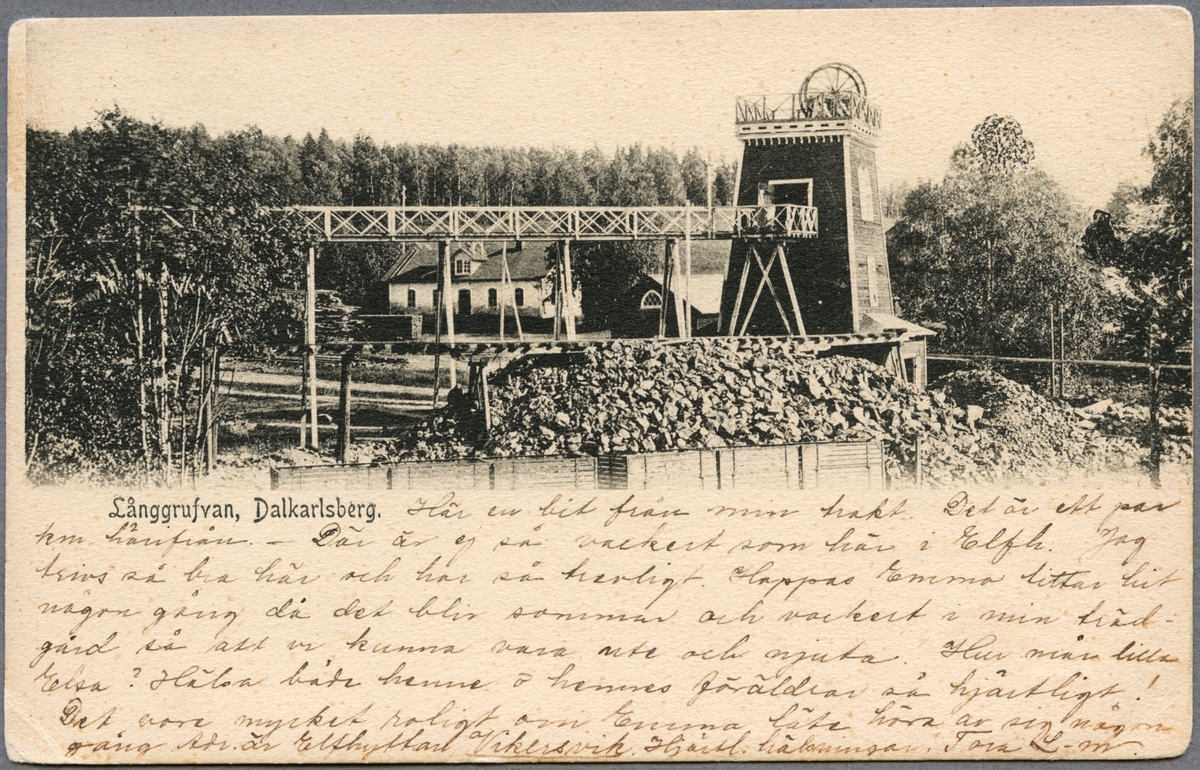 Långgrufvan, Dalkarlsberg. Här en bit från min trakt. Det är ett par
km härifrån. – Där är ej så vackert som här i Elfh. Jag
trivs så bra här och har så trevligt. Hoppas Emma tittar hit
någon gång då det blir sommar och vackert i min träd-
gård så att vi kunna vara ute och njuta! Hur mår lilla
Elsa? Hälsa både henne o hennes föräldrar så hjärtligt!
Det vore mycket roligt om Emma läte höra av sig någon
gång Adr. är Elfhyttan Vikersvik. Hjärtl. hälsningar. Tora L–m.